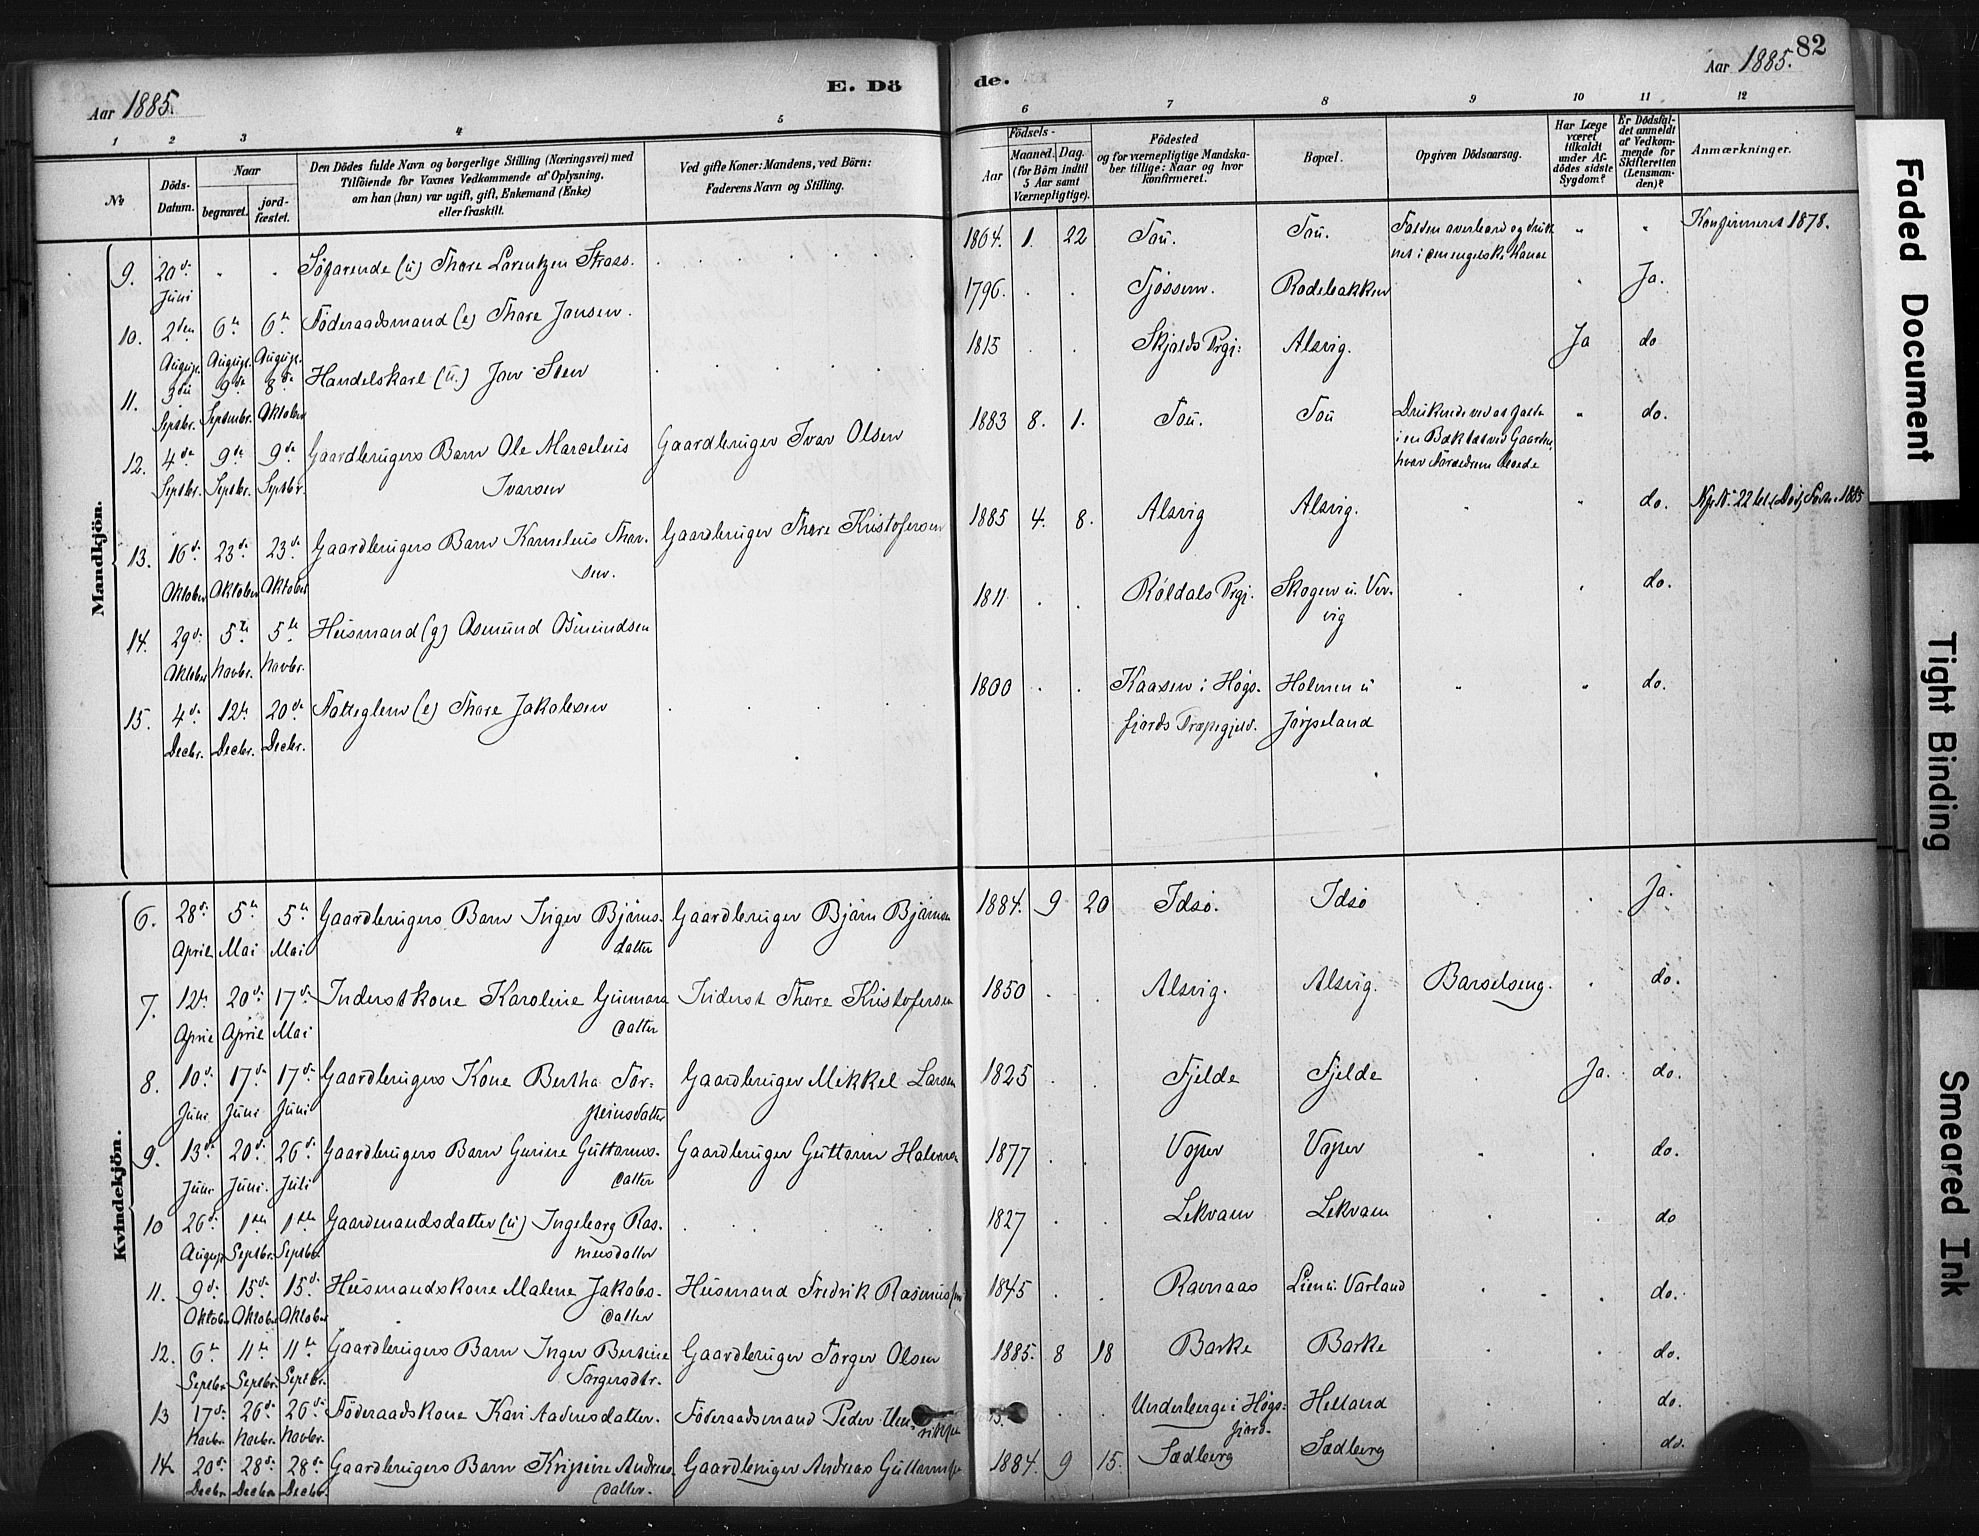 Aar 1885.
E. Döde.
Aar 1885.
82
1 2 3 4 5 6 7 8 9 10 11 12
No
Döds-Datum.
Naar
begravet.
jord-fæstet.
Den Dödes fulde Navn og borgerlige Stilling (Næringsvei) med
Tilföiende for Voxnes Vedkommende af Oplysning,
om han (hun) var ugift, gift, Enkemand (Enke)
eller fraskilt.
Ved gifte Koner: Mandens, ved Börn:
Faderens Navn og Stilling.
Födsels-
Aar
Maaned. Dag.
(for Börn indtil
5 Aar samt
Værnepligtige).
Födested
og for værnepligtige Mandska-
ber tillige: Naar og hvor
konfirmeret.
Bopæl.
Opgiven Dödsaarsag.
Har Læge
været
tilkaldt
under Af-
dödes sidste
Sygdom?
Er Dödsfal-
det anmeldt
af Vedkom-
mende for
Skifteretten
(Lensman-
den)?
Anmærkninger.
Mandkjön.
9. 20de Juni " " Søfarende (u) Thore Lorentzen 1864. 1. 22 Tou. Tou. " " Konfirmeret 1878.
10. 2den August. 6te August. 6te August. Föderaadsmand (e) Thore Jansen. 1796. Tjøssem. Rodebakken Ja.
11. 3die Septbr. 9de September. 8de Oktober Handelskarl (u.) Jon Sten 1815 Skjolds Prgj: Alsvig. Ja do
12. 4de Septbr. 9de Septbr. 9de Septbr. Gaardbrugers Barn Ole Marcelius
Ivarsen Gaardbruger Ivar Olsen 1883 8. 1. Tou. Tou " do.
13. 16de Oktober 23de Oktober 23de Oktober Gaardbrugers Barn Kornelius Thor-
sen. Gaardbruger Thore Kristofersen 1885 4. 8. Alsvig Alsvig. " do.
14. 29de Oktober 5te Novbr. 5te Novbr. Husmand (g) Osmund Osmundsen 1811 Röldals Prgj. Skogen u. Ver-
vig do.
15. 4de Decbr. 12te Decbr. 20de Decbr. Fatteglem (e) Thore Jakobsen 1800 Kaasen i Høgs-
fjords Præstegjeld. Holmen u
Jørpeland " " do.
Kvindekjön.
6. 28de April 5te Mai 5te Mai Gaardbrugers Barn Inger Bjørns-
datter Gaardbruger Bjørn Bjørnsen 1884. 9 20 Idsø. Idsø Ja.
7. 12te April 20de April 17de Mai Inderstkone Karoline Gunnars
datter Inderst Thore Kristofersen 1850 Alsvig. Alsvig. Barselseng. do.
8. 10de Juni 17de Juni 17de Juni Gaardbrugers Kone Bertha Tor-
steinsdatter Gaardbruger Mikkel Larsen 1825 Fjelde Fjelde Ja. do.
9. 13de Juni 20de Juni. 26de Juli Gaardbrugers Barn Gurine Guttorms-
datter Gaardbruger Guttorm 1877 do.
10 26de August 1ste Septbr. 1ste Septbr. Gaardmandsdatter (u) Ingeborg Ras-
musdatter 1827 Lekvam Lekvam do
11. 9de Oktober 15de Oktober 15de Oktober Husmandskone Malene Jakobs-
datter Husmand Fredrik Rasmussen 1845 Ravnaas Lien u. Varland do.
12. 6te Septbr. 11te Septbr. 11te Septbr. Gaardbrugers Barn Inger Bertine
Torgersdtr. Gaardbruger Torger Olsen 1885. 8 18 Barke Barke do.
13 17de Novbr. 26de Novbr. 26de Novbr. Föderaadskone Kari Aadnesdatter. Föderaadsmand Peder Underberge i Høgs-
fjord. Helland do.
14 20de Decbr 28de Decbr 28de Decbr Gaardbrugers Barn Kristine Andreas
datter. Gaardbruger Andreas 1884. 9 15. Sedberg Sedberg do.
Faded Document
Tight Binding
Smeared Ink